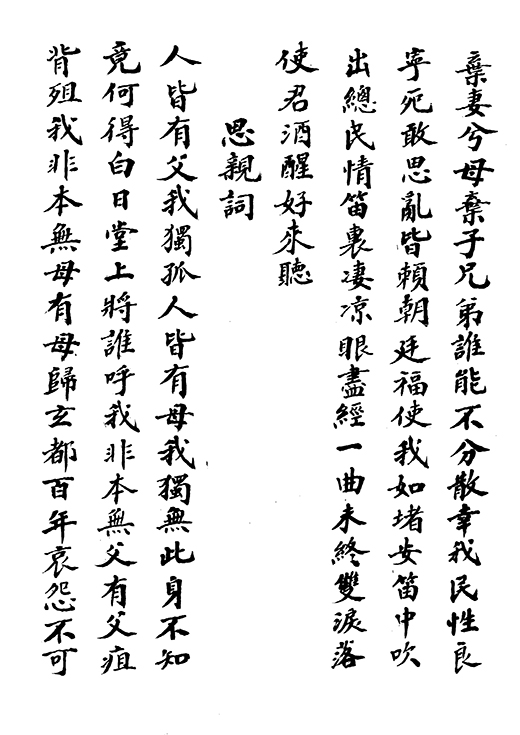 棄妻兮母棄子兄弟誰能不分散幸我民性良
寧死敢思亂皆賴朝廷福使我如堵安笛中吹
出總民情笛裏凄凉眼盡經一曲未終雙淚落
使君酒醒好來聽
思親詞
人皆有父我獨孤人皆有母我獨無此身不知
竟何得白日堂上將誰呼我非本無父有父疽
背殂我非本無母有母歸玄都百年哀怨不可